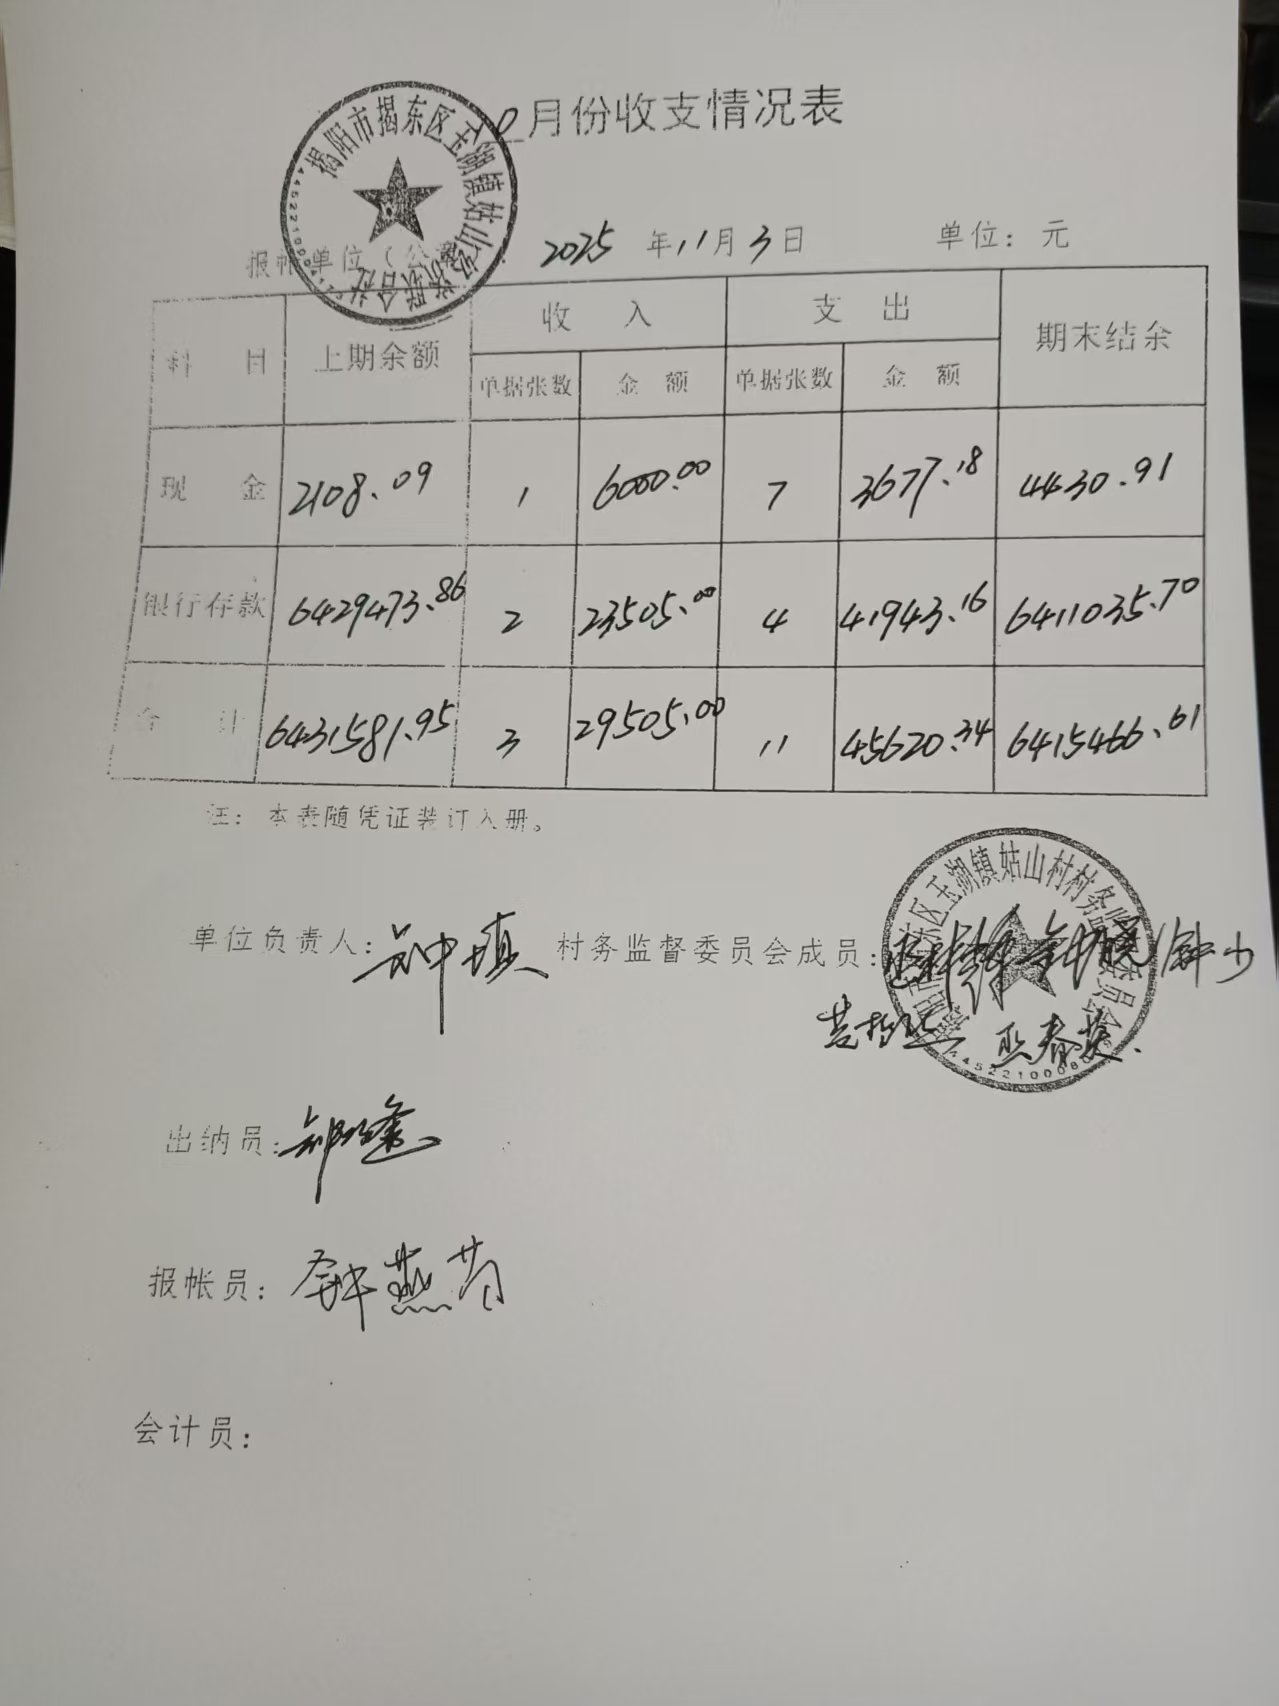 0月份收支情况表
揭阳市揭东区玉湖镇姑山经济联合社
报帐单位（公章
2025年11月3日
单位：元
科目 上期余额 收入 支出 期末结余
单据张数 金额 单据张数 金额
现金 2108.09 1 6000.00 7 3677.18 4430.91
银行存款 6429473.86 2 23505.00 4 41943.16 6411035.70
合计 6431581.95 3 29505.00 11 45620.34 6415466.61
注：本表随凭证装订入册。
区玉湖镇姑山村村务监督委员会
单位负责人：钟填 村务监督委员会成员：
钟少
巫春英
出纳员：
报帐员：钟燕芳
会计员：